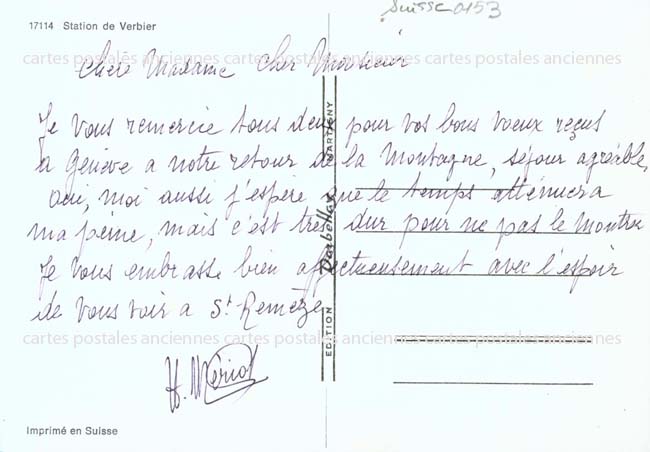 Suisse 0153
17114 Station de Verbier
cartes postales anciennes cartes postales anciennes cartes postales anciennes
Chère Madame Cher Monsieur
Je vous remercie tous deux pour vos bons voeux reçus
a Genève a notre retour de la Montagne, séjour agréable,
oui, moi aussi j'espère que le temps atténuera
ma peine, mais c'est très dur pour ne pas le montrer
Je vous embrasse bien affectueusement avec l'espoir
de vous voir a St Remèze
cartes postales anciennes cartes postales anciennes cartes postales anciennes
H. Mériot
EDITION Darbellay MARTIGNY
Imprimé en Suisse